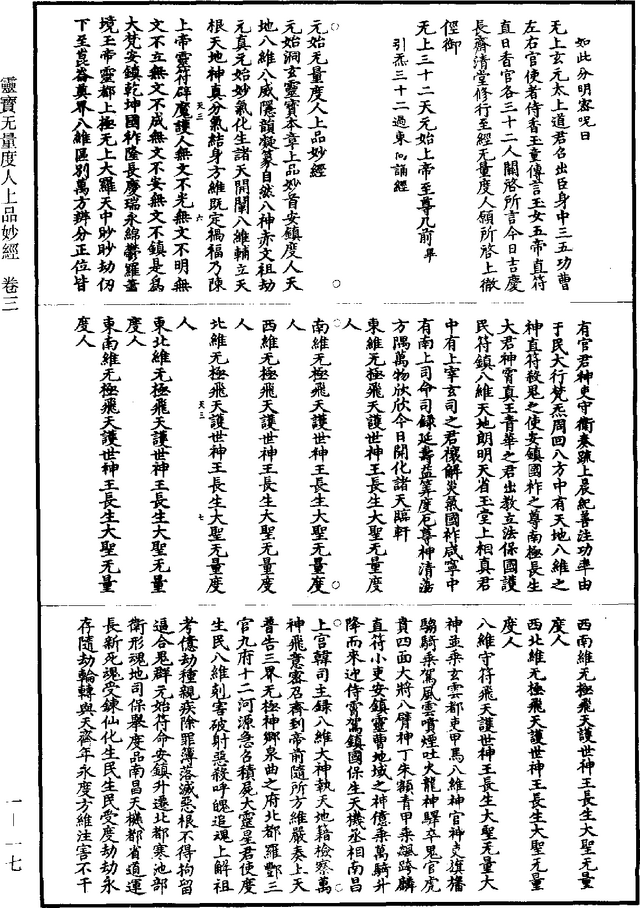 如此分明密呪曰
无上玄元太上道君召出臣身中三五功曹
左右官使者侍香玉童傳言玉女五帝直符
直日香官各三十二人關啓所言今日吉慶
長齋清堂修行至經无量度人願所啓上徹
徑御
无上三十二天元始上帝至尊几前畢
引炁三十二過東向誦經
元始无量度人上品妙經
元始洞玄靈寶本章上品妙首安鎮度人天
地八維八威隱韻凝篆自然八神赤文祖劫
元真元始妙氣化生諸天開闡八維輔立天
根天地神真分氣結身方維既定禍福乃陳
天三
六
上帝靈符辟魔護人無文不光無文不明無
文不立無文不成無文不安無文不鎮是爲
大梵安鎮乾坤國祚隆長慶瑞永綿鬱羅蕭
境玉帝靈都上極无上大羅天中眇眇劫仞
下至豐岳冥界八維區別萬方辨分正位皆
有官君神吏守衛奏䟽上晨紀善注功率由
于民大行梵炁周回八方中有天地八維之
神直符殺鬼之使安鎮國祚之尊南極長生
大君神霄真王青華之君出教立法保國護
民符鎮八維天地朗明天省玉堂上相真君
中有上宰玄司之君禳解災氣國祚咸寧中
有南上司命司録延壽益筭度厄尊神清蕩
方隅萬物欣欣今日開化諸天臨軒
東維无極飛天護世神王長生大聖无量度
人
南維无極飛天護世神王長生大聖无量度
人
西維无極飛天護世神王長生大聖无量度
人
北維无極飛天護世神王長生大聖无量度
天三
七
人
東北維无極飛天護世神王長生大聖无量
度人
東南維无極飛天護世神王長生大聖无量
度人
西南維无極飛天護世神王長生大聖无量
度人
西北維无極飛天護世神王長生大聖无量
度人
八維守符飛天護世神王長生大聖无量大
神並乘玄雲都吏甲馬八維神官神吏旗旛
騶騎乘駕風雲噴煙吐火龍神驛卒鬼官虎
賁四面大將八臂神丁朱額青甲乘飈跨麟
直符小吏安鎮靈曹地域之神億乘萬騎升
降而來迎侍雲駕鎮國保生天機丞相南昌
上宫韓司主録八維大神執天地籍檢察萬
神飛意密召齊到帝前隨所方維嚴奏上天
普告三界无極神鄉泉曲之府北都羅酆三
官九府十二河源急召積屍大靈星君使度
生民八維剋害破射惡殺呼魄追魂上解祖
考億劫種親疾除罪薄落滅惡根不得拘留
逼合鬼群元始符命安鎮升遷北都寒池部
衛形魂地司保舉度品南昌天機都省道運
長新死魂受鍊仙化生民生民受度劫劫永
存隨劫輪轉與天齊年永度方維注害不干
靈寶无量度人上品妙經 卷三
一—一七